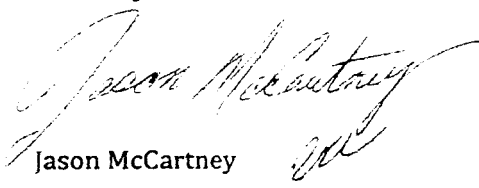 Jason McCartney
Jason McCartney